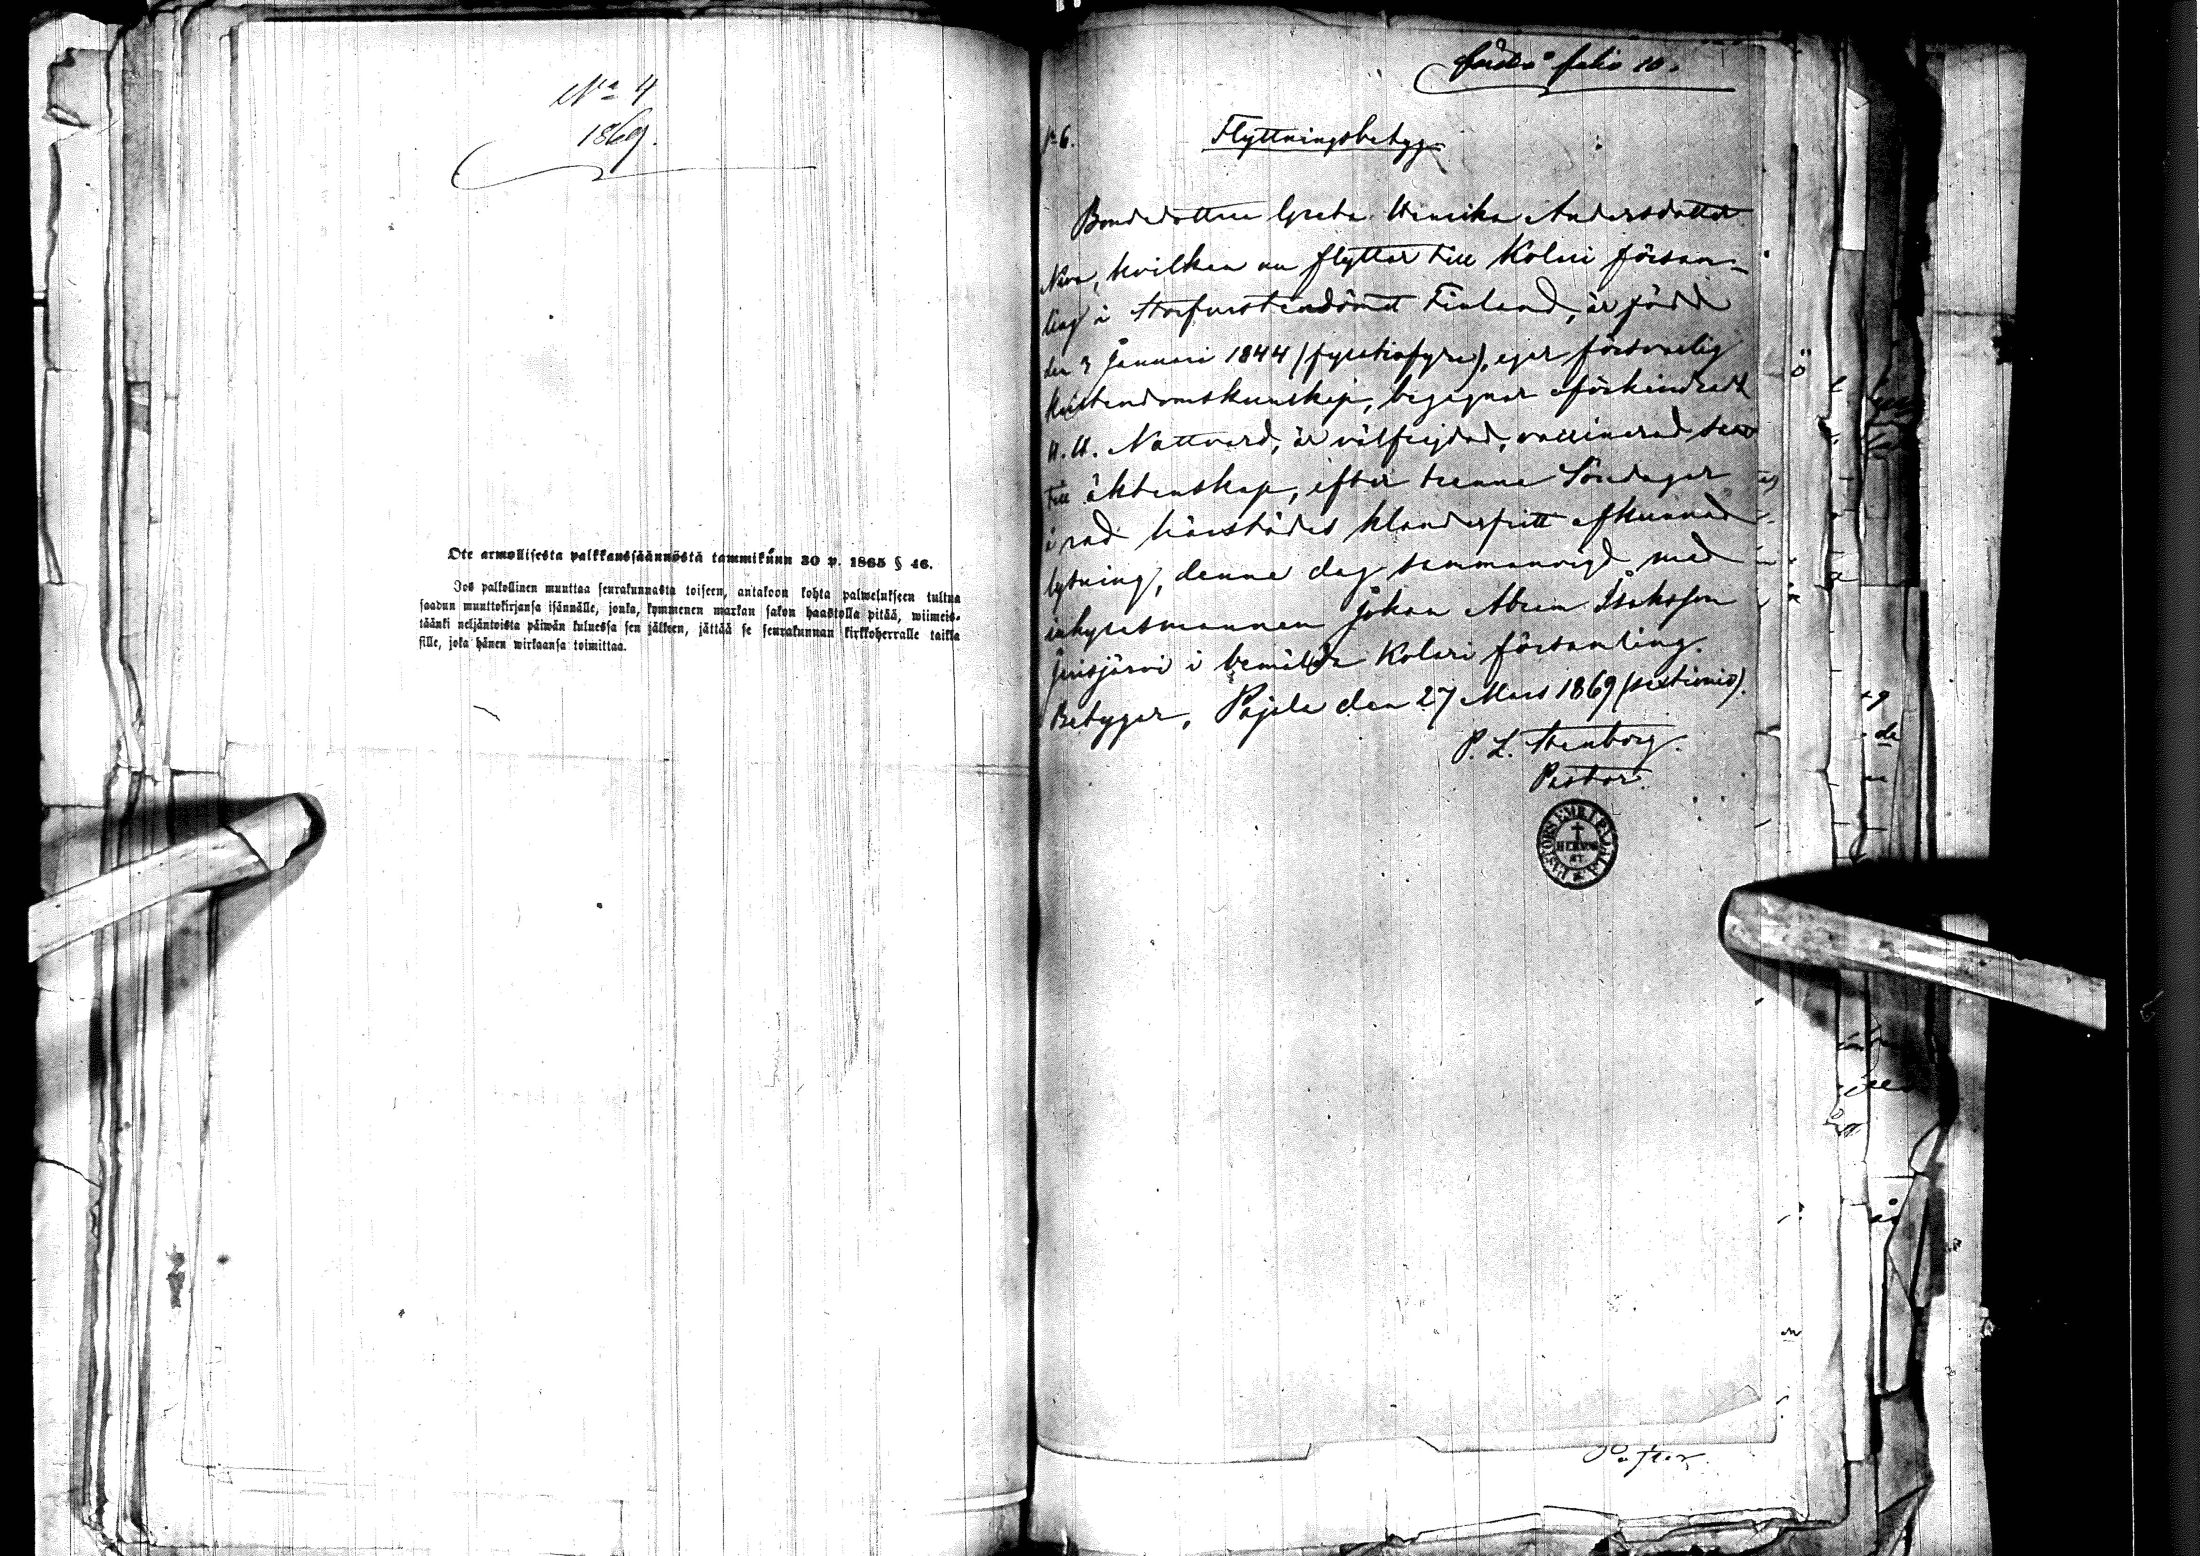 No 4
1869.
Ote armollisesta palkkaussäännöstä tammikuun 30 p. 1865 § 46.
Jos palkollinen muuttaa seurakunnasta toiseen, antakoon kohta palwelukseen tultua
saadun muuttokirjansa isännälle, jonka, kymmenen markan sakon haastolla pitää, wiimeis-
täänki neljäntoista päiwän kuluessa sen jälkeen, jättää se seurakunnan kirkkoherralle taikka
sille, joka hänen wirkaansa toimittaa.
folio 10.
N 6.
Flyttningsbetyg
Bondedottren Greta Henrika Andersdotter
Niva, hvilken nu flyttar till Kolari försam-
ling i Storfurstendömet Finland, är född
den 3 Januari 1844 (fyratiofyra), eger försvarlig
kristendomskunskap, begagnar oförhindradt
H. H. Nattvard, är välfrejdad, vaccinerad samt
till äktenskap, efter trenne Söndagar
i rad härstädes klanderfritt afkunnad
lysning, denne dag sammanvigd med
inhysesmannen Johan Abram Isaksson
Jerisjärvi i bemälda Kolari församling.
Betygar, Pajala den 27 Mars 1869 (sextionio).
P. L. Stenborg.
Pastor.
Pastor